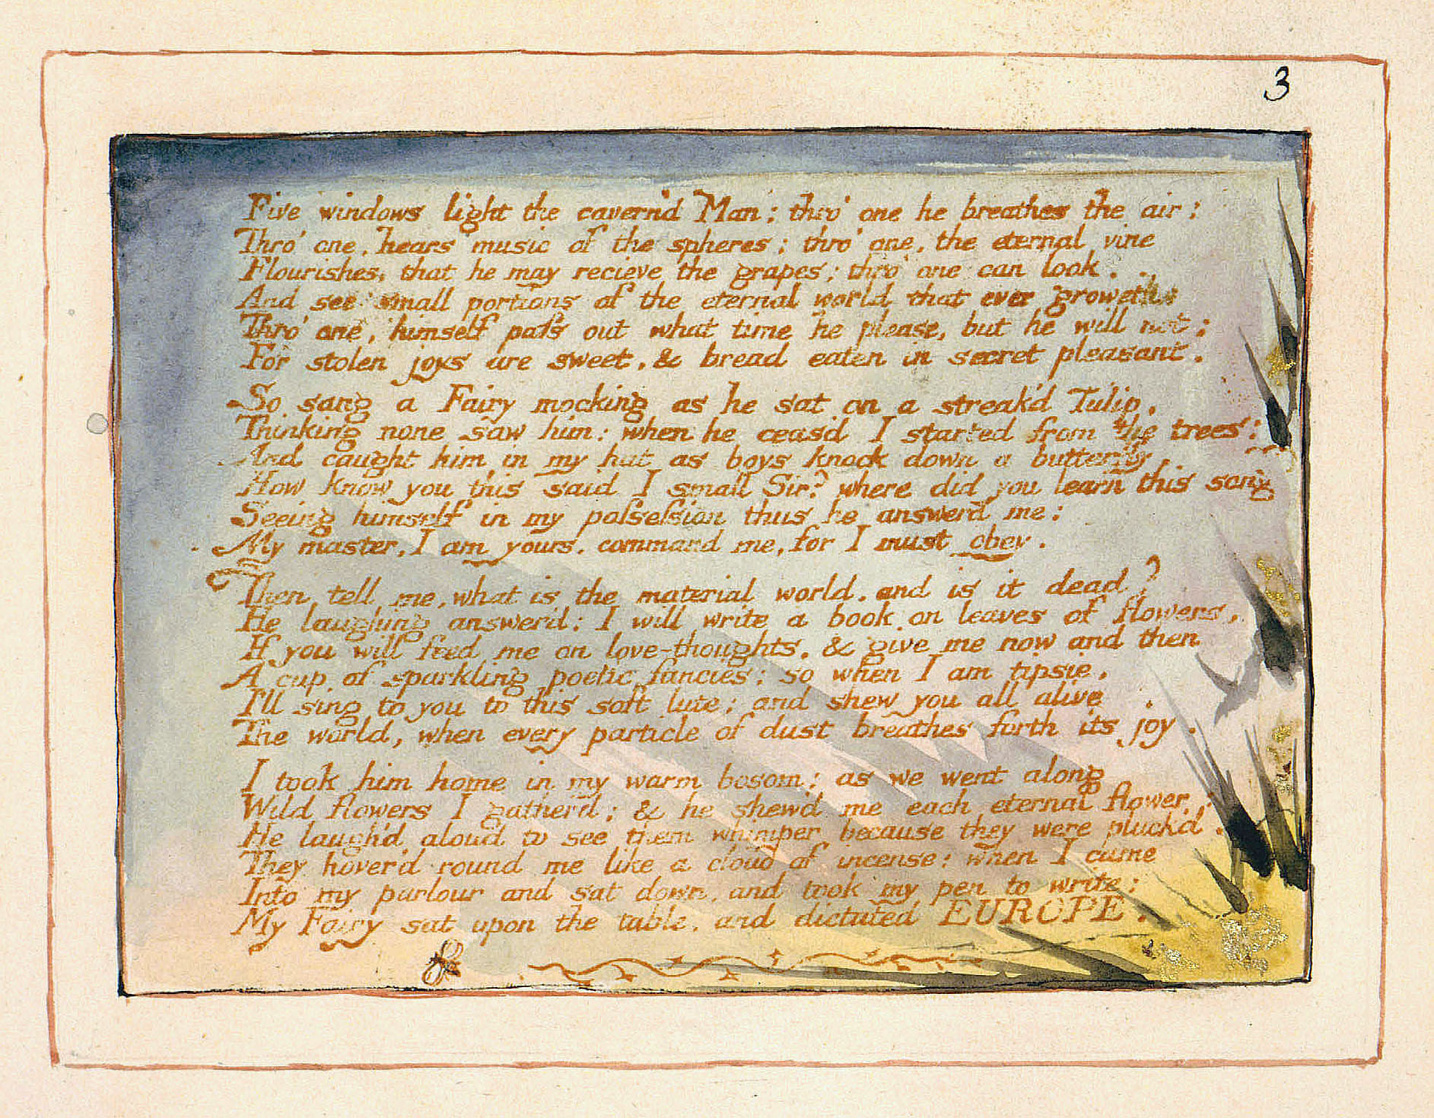 3
Five windows light the cavern'd Man: thro' one he breathes the air:
Thro' one, hears music of the spheres; thro' one, the eternal vine
Flourishes, that he may recieve the grapes; thro' one can look.
And see small portions of the eternal world that ever groweth;
Thro' one, himself pass out what time he please, but he will not;
For stolen joys are sweet, & bread eaten in secret pleasant.
So sang a Fairy mocking as he sat on a streak'd Tulip,
Thinking none saw him: when he ceas'd I started from the trees:
And caught him in my hat as boys knock down a butterfly
How know you this said I small Sir? where did you learn this song
Seeing himself in my possession thus he answerd me:
My master, I am yours. command me, for I must obey.
Then tell me, what is the material world, and is it dead?
He laughing answer'd: I will write a book on leaves of flowers,
If you will feed me on love-thoughts, & give me now and then
A cup of sparkling poetic fancies; so when I am tipsie,
I'll sing to you to this soft lute; and shew you all alive
The world, when every particle of dust breathes forth its joy.
I took him home in my warm bosom: as we went along
Wild flowers I gather'd; & he shew'd me each eternal flower:
He laugh'd aloud to see them whimper because they were pluck'd.
They hover'd round me like a cloud of incense: when I came
Into my parlour and sat down, and took my pen to write:
My Fairy sat upon the table, and dictated EUROPE.